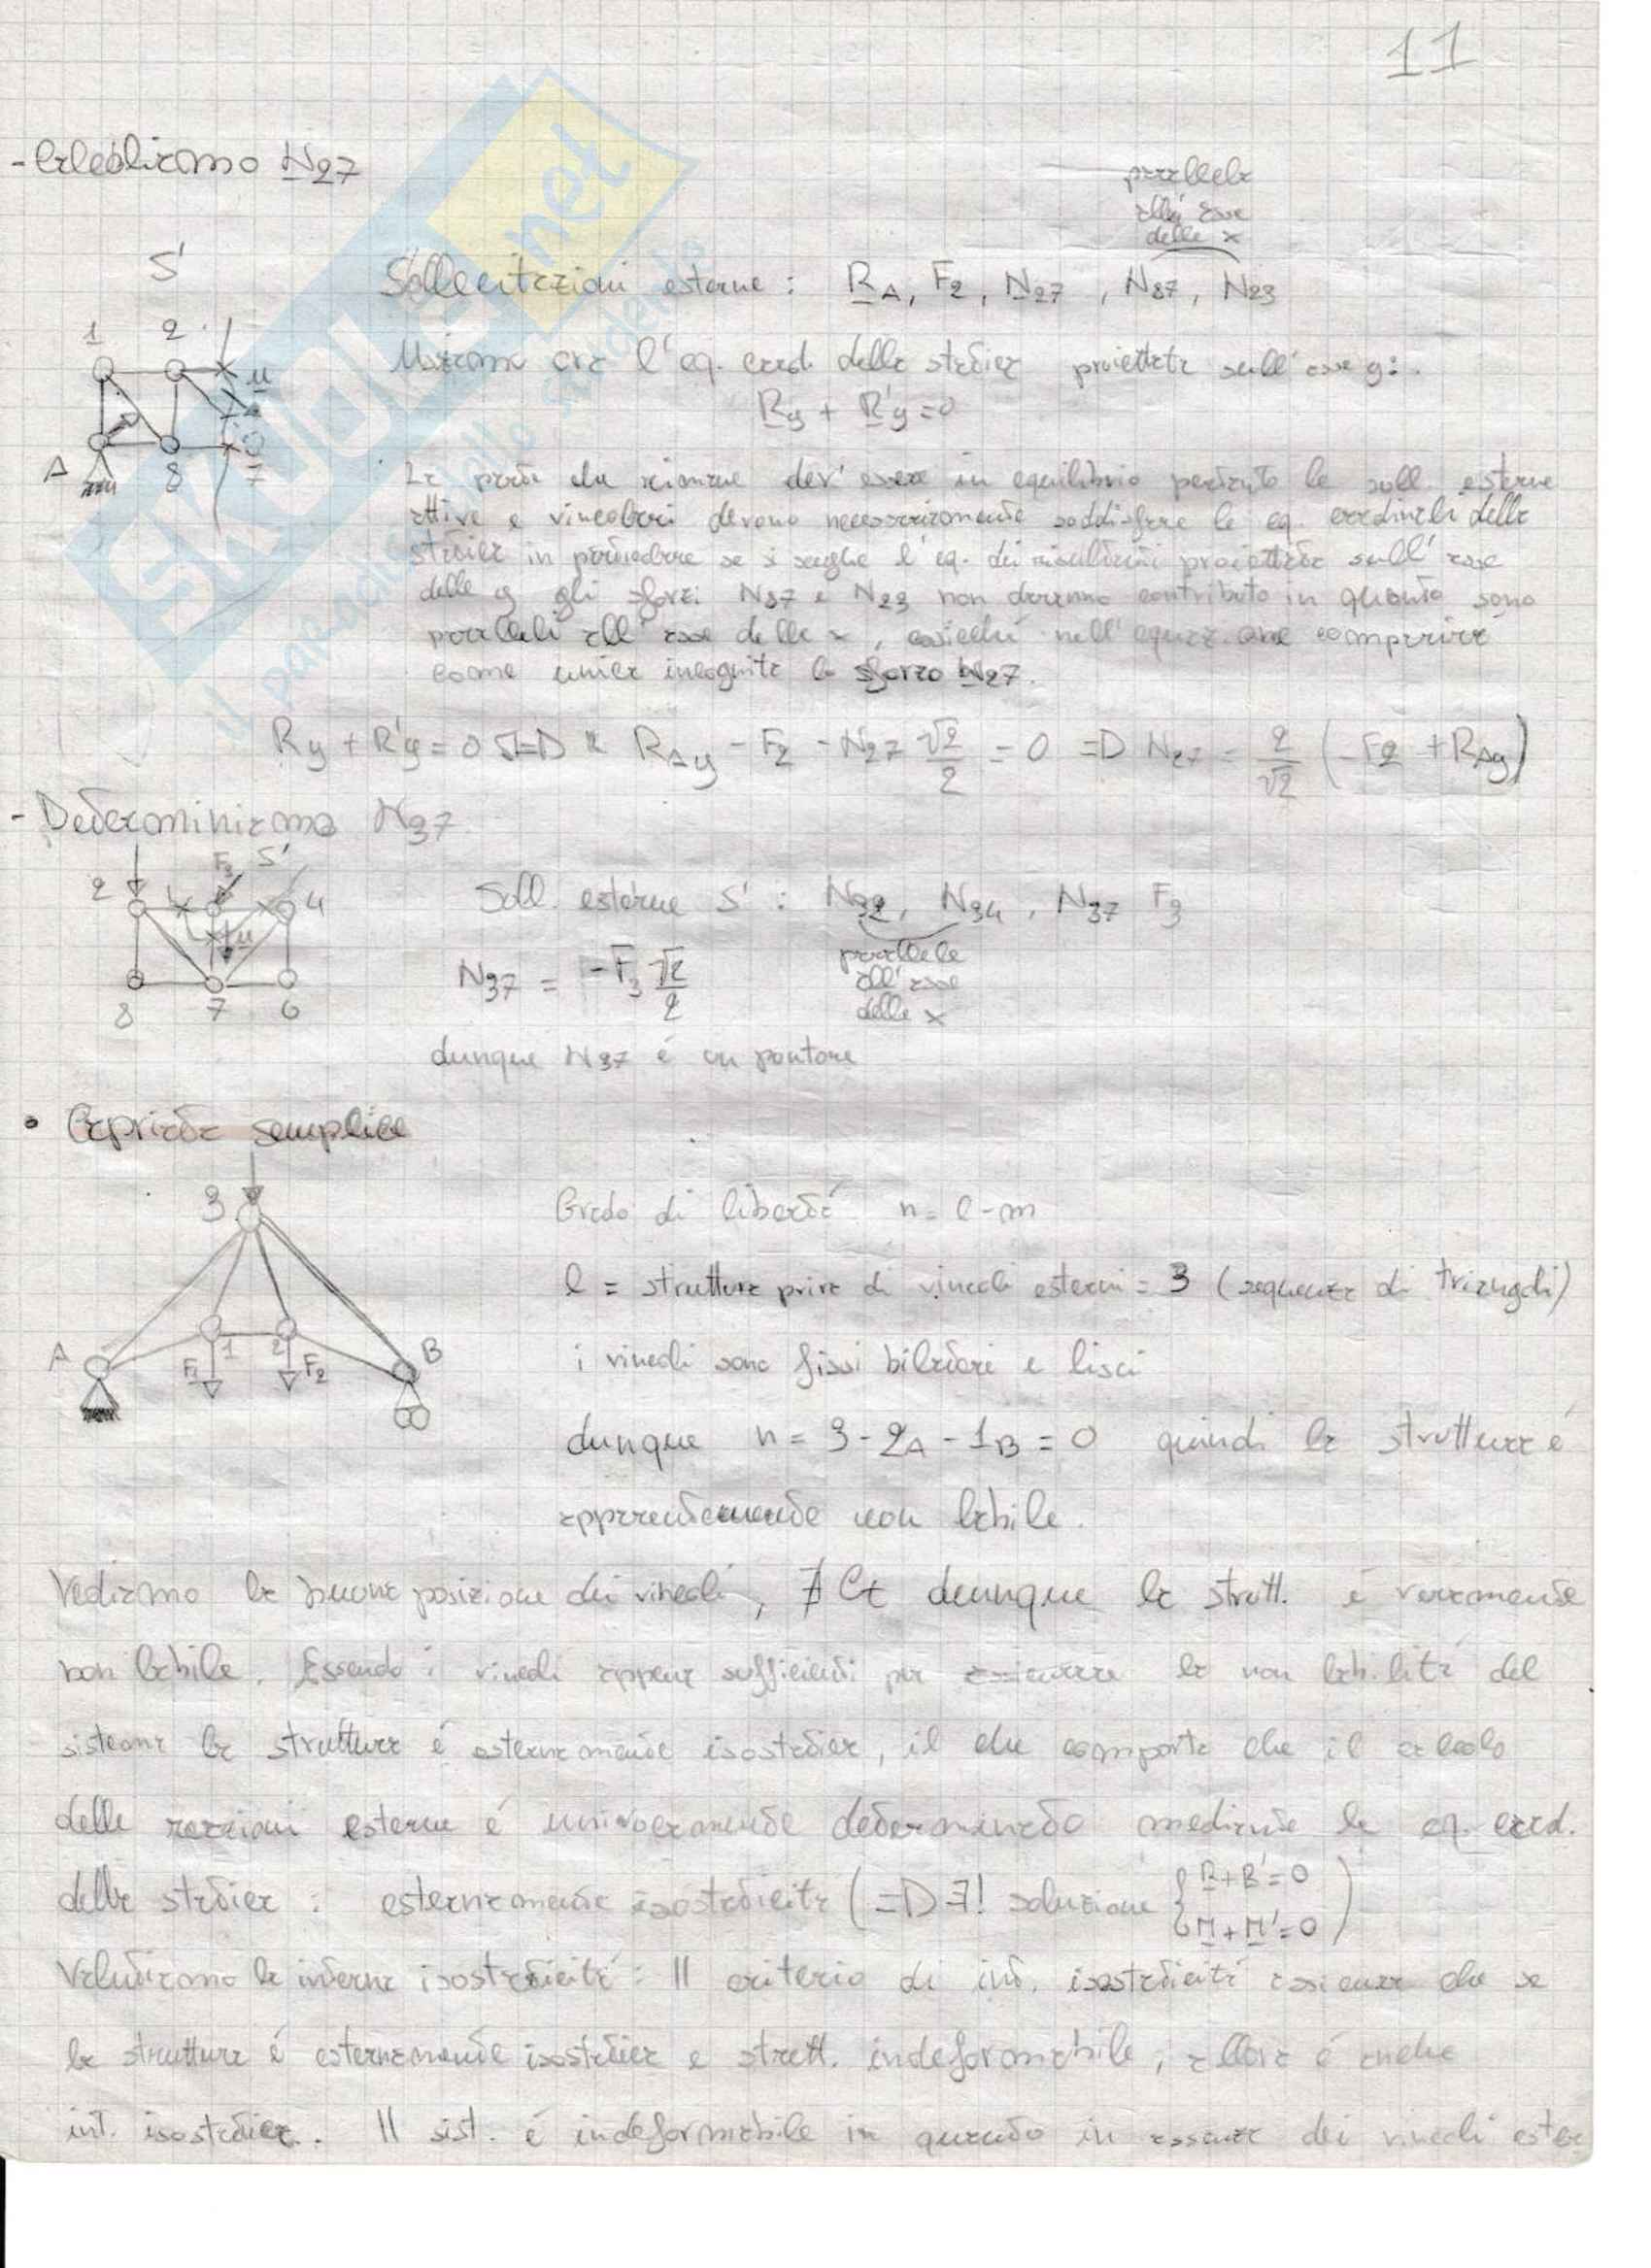 11
- Calcoliamo N27
parallele
all'asse
delle x
S'
Sollecitazioni esterne : RA, F2, N27 , N87, N23
1 2
u
A 8 7
Usiamo ora l'eq. card. della statica proiettata sull'asse y:
Ry + R'y = 0
La parte che rimane dev'essere in equilibrio pertanto le soll. esterne
attive e vincolari devono necessariamente soddisfare le eq. cardinali della
statica in particolare se si sceglie l'eq. dei risultanti proiettata sull'asse
delle y gli sforzi N87 e N23 non daranno contributo in quanto sono
paralleli all'asse delle x, cosicché nell'equazione comparirà
come unica incognita lo sforzo N27.
Ry + R'y = 0 => RAy - F2 - N27 √2/2 = 0 => N27 = 2/√2 (-F2 + RAy)
- Determiniamo N37
F3 S'
2 4
u
8 7 6
Soll. esterne S' : N32, N34, N37 F3
parallele
all'asse
delle x
N37 = -F3 √2/2
dunque N37 è un puntone
• Capriata semplice
3
A 1 2 B
F1 F2
Grado di libertà n = l - m
l = struttura priva di vincoli esterni = 3 (sequenza di triangoli)
i vincoli sono fissi bilateri e lisci
dunque n = 3 - 2A - 1B = 0 quindi la struttura è
apparentemente non labile.
Vediamo la buona posizione dei vincoli, ∄ Ct dunque la strutt. è veramente
non labile. Essendo i vincoli appena sufficienti per assicurare la non labilità del
sistema la struttura è esternamente isostatica, il che comporta che il calcolo
delle reazioni esterne è univocamente determinato mediante le eq. card.
della statica : esternamente isostaticità (=> ∃! soluzione { R+R'=0
M+M'=0 )
Valutiamo la interna isostaticità : Il criterio di int. isostaticità assicura che se
la struttura è esternamente isostatica e strutt. indeformabile, allora è anche
int. isostatica. Il sist. è indeformabile in quanto in assenza dei vincoli ester